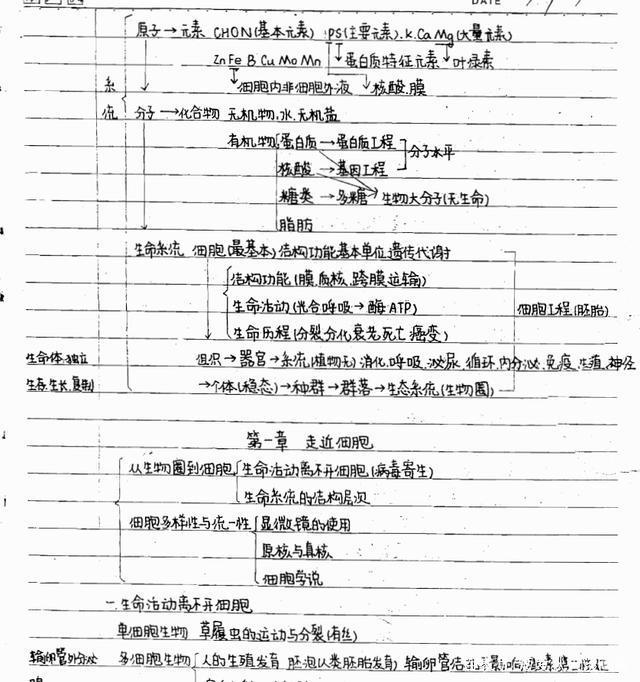 DATE
原子→元素 CHON(基本元素) PS(主要元素).K.Ca Mg(大量元素)
Zn Fe B Cu Mo Mn 蛋白质特征元素 叶绿素
细胞内非细胞外液 核酸.膜
系统
分子→化合物 无机物.水.无机盐
有机物 蛋白质→蛋白质工程 分子水平
核酸→基因工程
糖类→多糖→生物大分子(无生命)
脂肪
生命系统 细胞(最基本)结构功能基本单位.遗传代谢
结构功能(膜.质.核.跨膜运输)
生命活动(光合呼吸→酶.ATP) 细胞工程(胚胎)
生命历程(分裂分化衰老死亡.癌变)
生命体:独立 组织→器官→系统(植物无)消化.呼吸.泌尿.循环.内分泌.免疫.生殖.神经
生存.生长.复制 →个体(稳态)→种群→群落→生态系统(生物圈)
第一章 走近细胞
从生物圈到细胞 生命活动离不开细胞(病毒寄生)
生命系统的结构层次
细胞多样性与统一性 显微镜的使用
原核与真核
细胞学说
一.生命活动离不开细胞
单细胞生物 草履虫的运动与分裂(有丝)
多细胞生物 人的生殖发育 胚泡(人类胚胎发育) 输卵管结